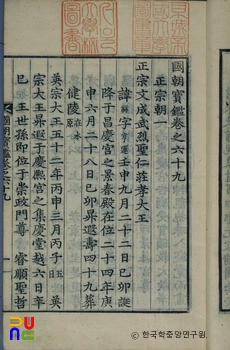 國朝寶鑑卷之六十九
正宗朝一
正宗文成武烈聖仁莊孝大王
諱祘字亨運壬申九月二十二日己卯誕
降于昌慶宮之景春殿在位二十四年庚
申六月二十八日己卯昇遐壽四十九葬
健陵在水原
英宗大王五十二年丙申三月丙子五日英
宗大王昇遐于慶熙宮之集慶堂越六日辛
巳 王世孫即位于崇政門尊 睿順聖哲
國朝寶鑑卷六十九
한국학중앙연구원